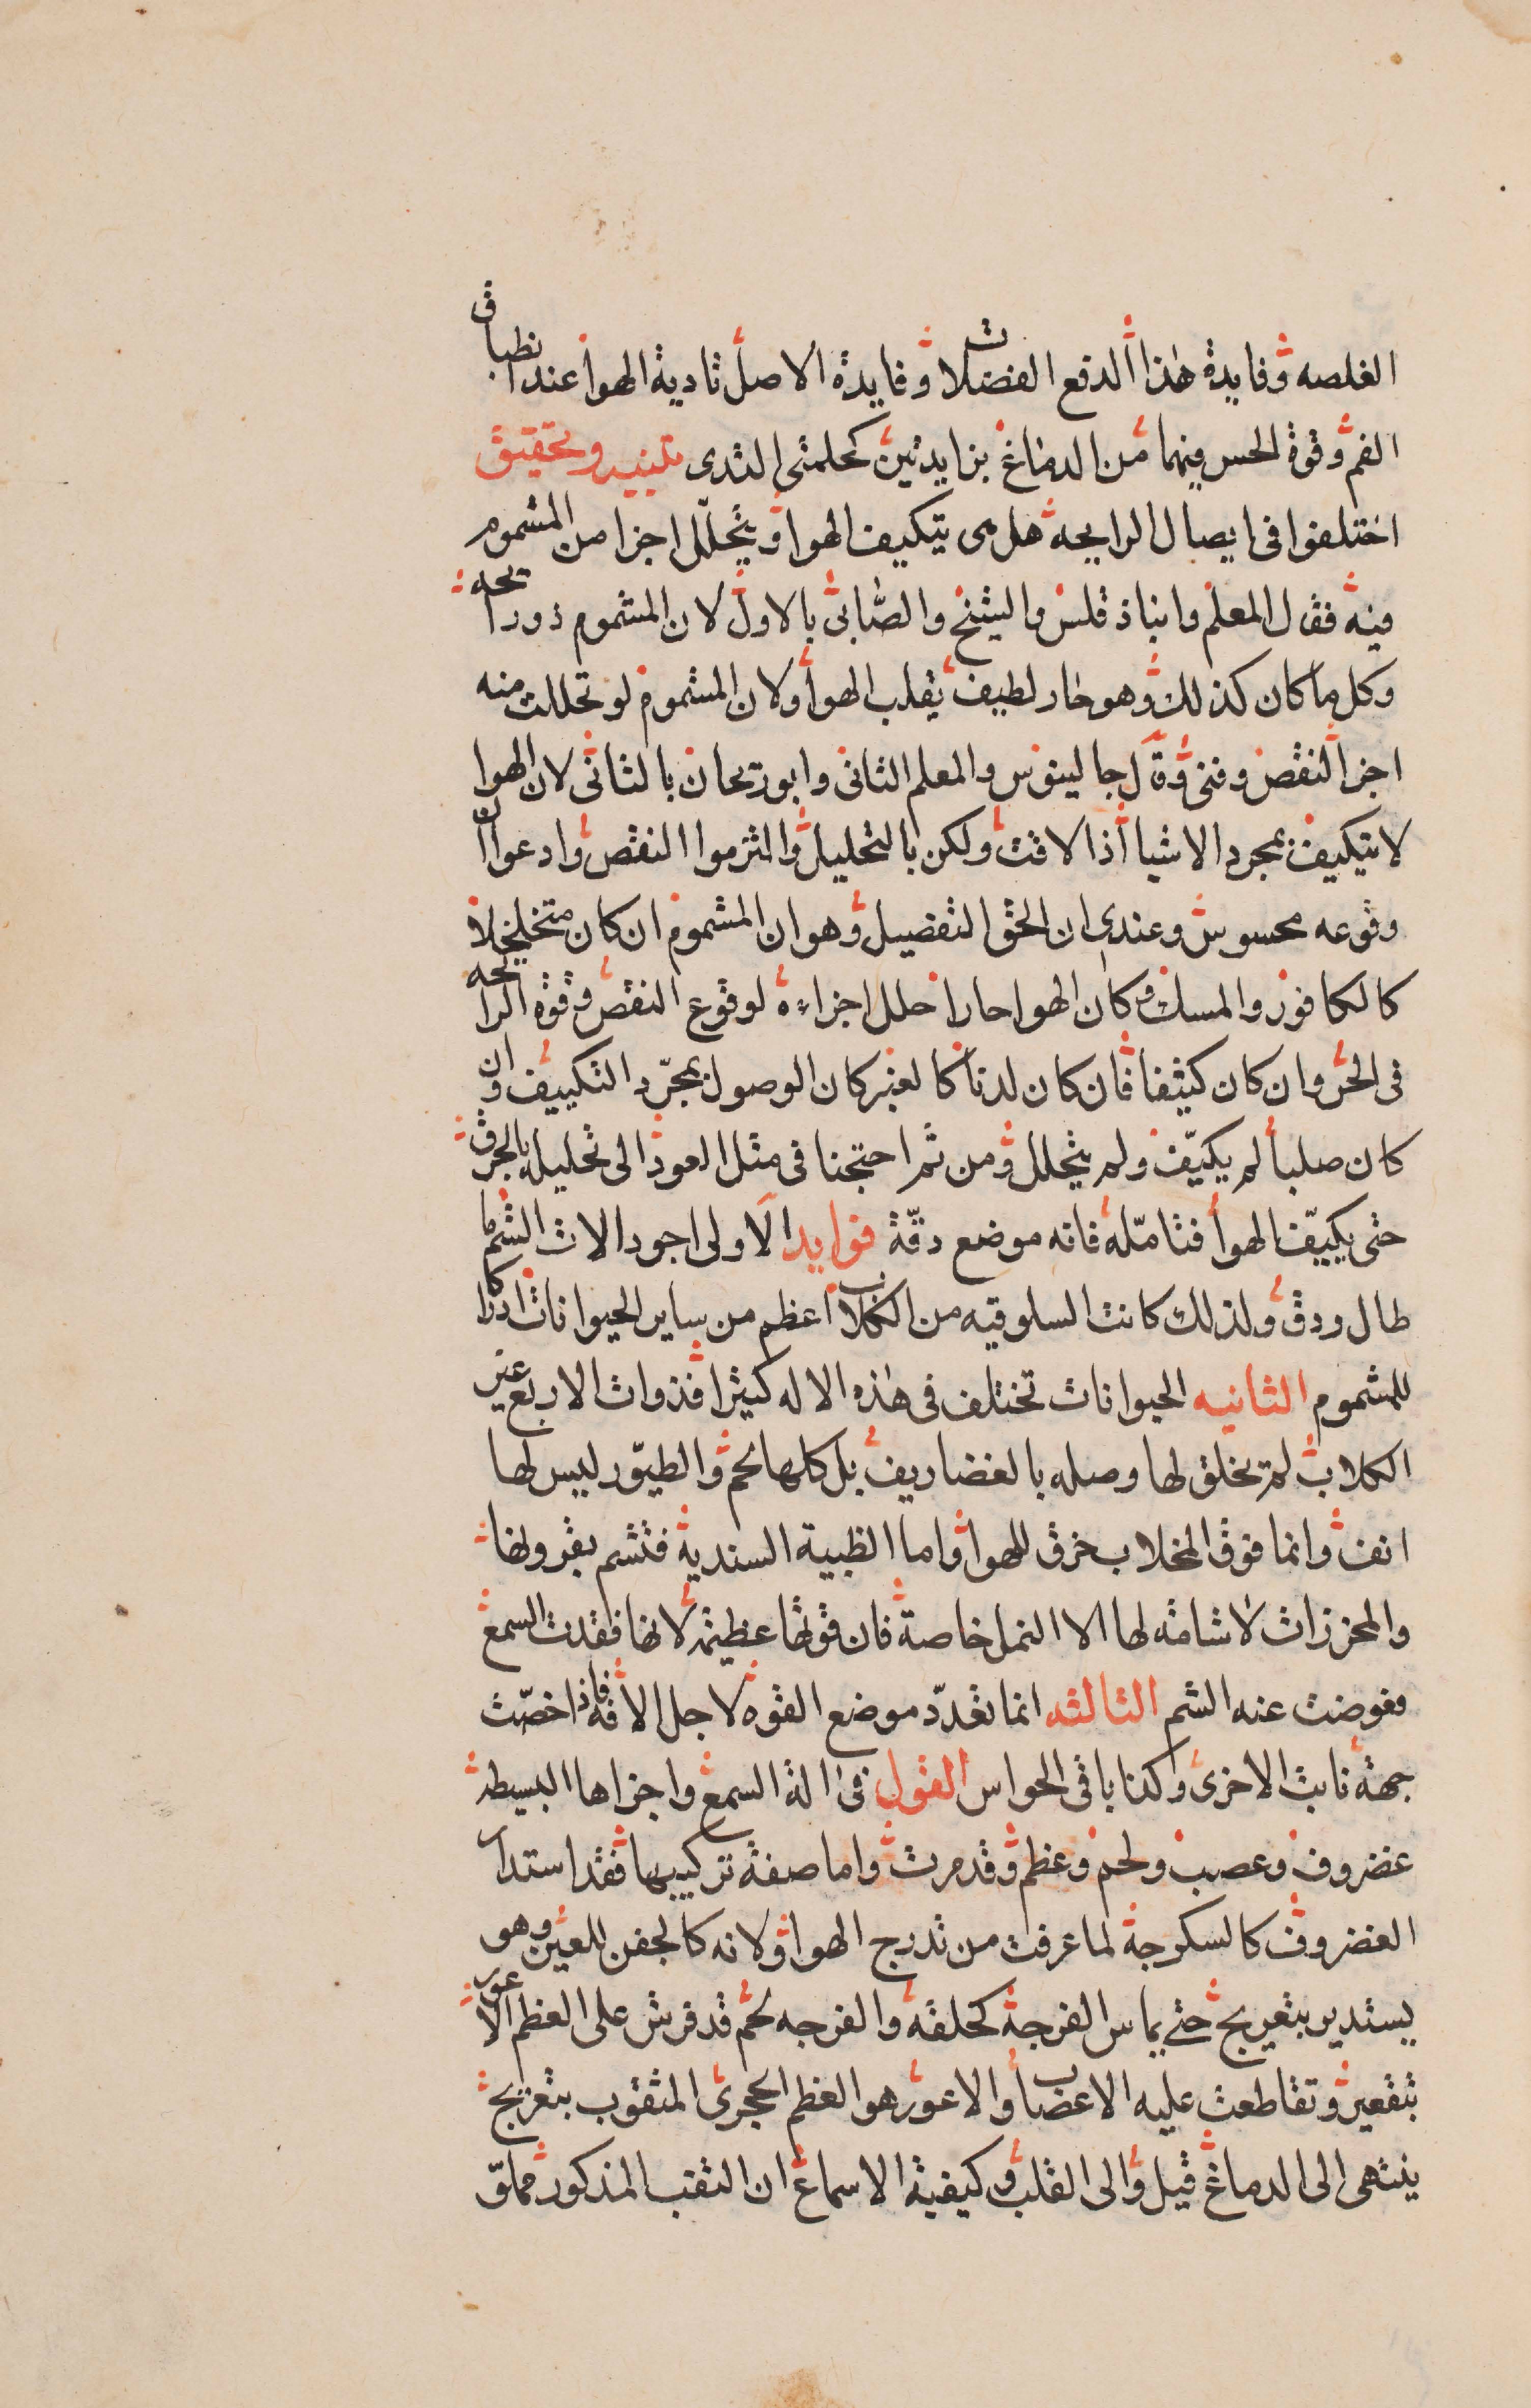 الغلصه وفايدة هذا الدفع الفضلات وفايدة الاصل تادية الهوا عند انطباق
الفم وقوة الحس فيهما من الدماغ بزايدتين كحلمتى الثدى تنبيه وتحقيق
اختلفوا فى ايصال الرايحه هل هى بتكييف الهوا او بتحلّل اجزا من المشموم
فيه فقال المعلم وانباذ قلس والشيخ والصّابى بالاول لان المشموم ذو رايحه
وكل ما كان كذلك وهو حار لطيف يقلب الهوا ولان المشموم لو تحللت منه
اجزا لنقص وفنى وقال جالينوس والمعلم الثانى وابو ريحان بالثانى لان الهوا
لا يتكيف بمجرد الاشيا اذا لاقت ولكن بالتحليل والتزموا النقص وادعوا ان
وقوعه محسوس وعندى ان الحق التفصيل وهو ان المشموم ان كان متخلخلا
كالكافور والمسك وكان الهوا حارا حلل اجزاءه لوقوع النقص وقوة الرايحه
فى الحر وان كان كثيفا فان كان لدنا كالعنبر كان الوصول بمجرّد التكييف وان
كان صلبا لم يكيّف ولم يتحلل ومن ثم احتجنا فى مثل العود الى تحليله بالحرق
حتى يكيّف الهوا فتامّله فانه موضع دقّة فوايد الاولى اجود الات الشم ما
طال ودق ولذلك كانت السلوقيه من الكلاب اعظم من ساير الحيوانات ادراكا
للمشموم الثانيه الحيوانات تختلف فى هذه الاله كثيرا فذوات الاربع غير
الكلاب لم يخلق لها وصله بالغضاريف بل كلها لحم والطيور ليس لها
انف وانما فوق المخلاب خرق للهوا واما الظبية السندية فتشم بقرونها
والمحززات لا شامة لها الا النمل خاصة فان قوتها عظيمه لانها فقدت السمع
فعوضت عنه الشم الثالثه انما تعدّد موضع القوه لاجل الافه فاذا خصّت
جهة نابت الاخرى وكذا باقى الحواس القول فى الة السمع واجزاها البسيطه
غضروف وعصب ولحم وعظم وقد مرت واما صفة تركيبها فقد استدار
الغضروف كالسكرجة لما عرفت من تدرج الهوا ولانه كالجفن للعين وهو
يستدير بتعريج حتى يماس الفرجة كحلقة والفرجه لحم قد فرش على العظم الاعور
بتقعير وتقاطعت عليه الاعصاب والاعور هو العظم الحجرى المثقوب بتعريج
ينتهى الى الدماغ قيل والى القلب وكيفية الاسماع ان الثقب المذكور مملوّ